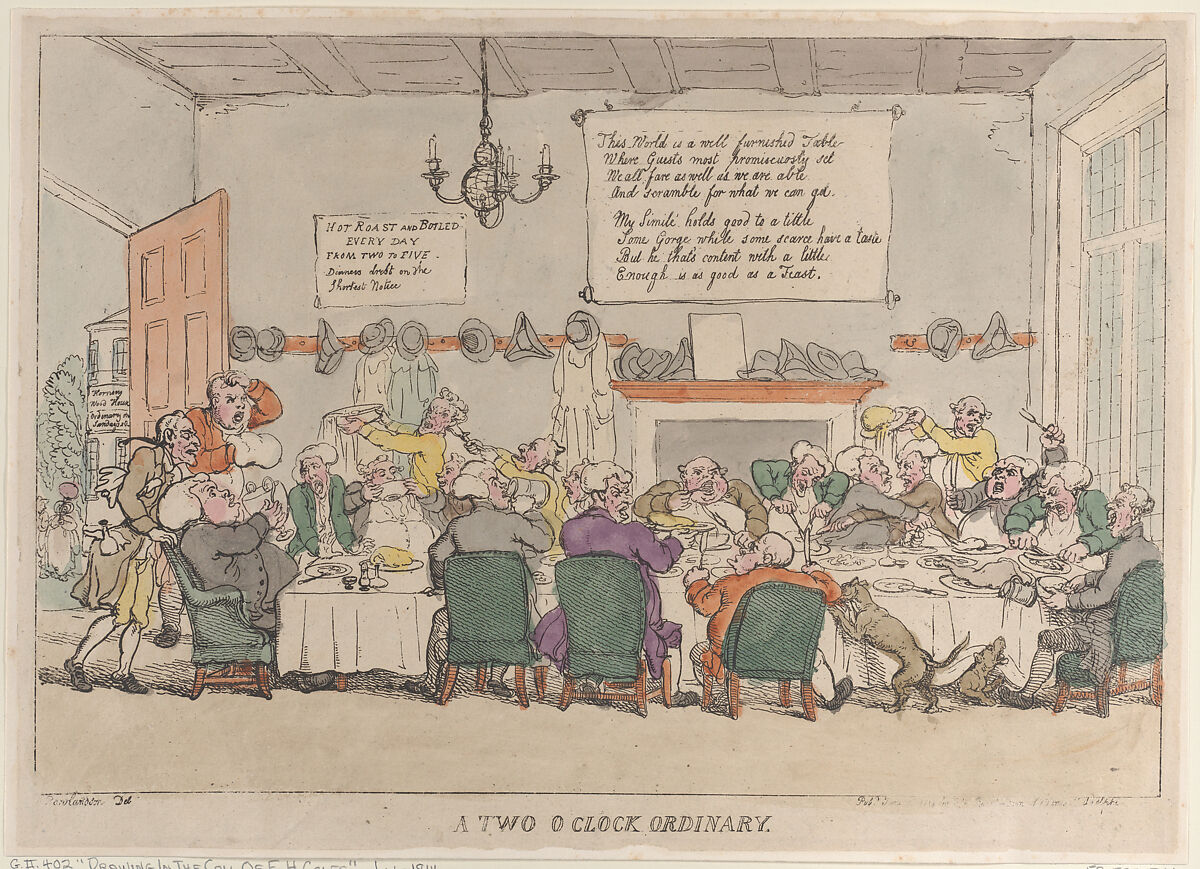 This World is a well furnished Table
Where Guests most promiscuosly set
We all fare as well as we are able
And scramble for what we can get.
My Simile holds good to a tittle
Some Gorge while some scarce have a taste
But he that's content with a little
Enough is as good as a Feast.
HOT ROAST AND BOILED
EVERY DAY
FROM TWO TO FIVE.
Dinners drest on the
Shortest Notice
Hornsey
Wood House
Ordinary on
Sundays
Rowlandson Del
A TWO O CLOCK ORDINARY.
G.II.402 "DRAWING IN THE COLL. OF E. H.